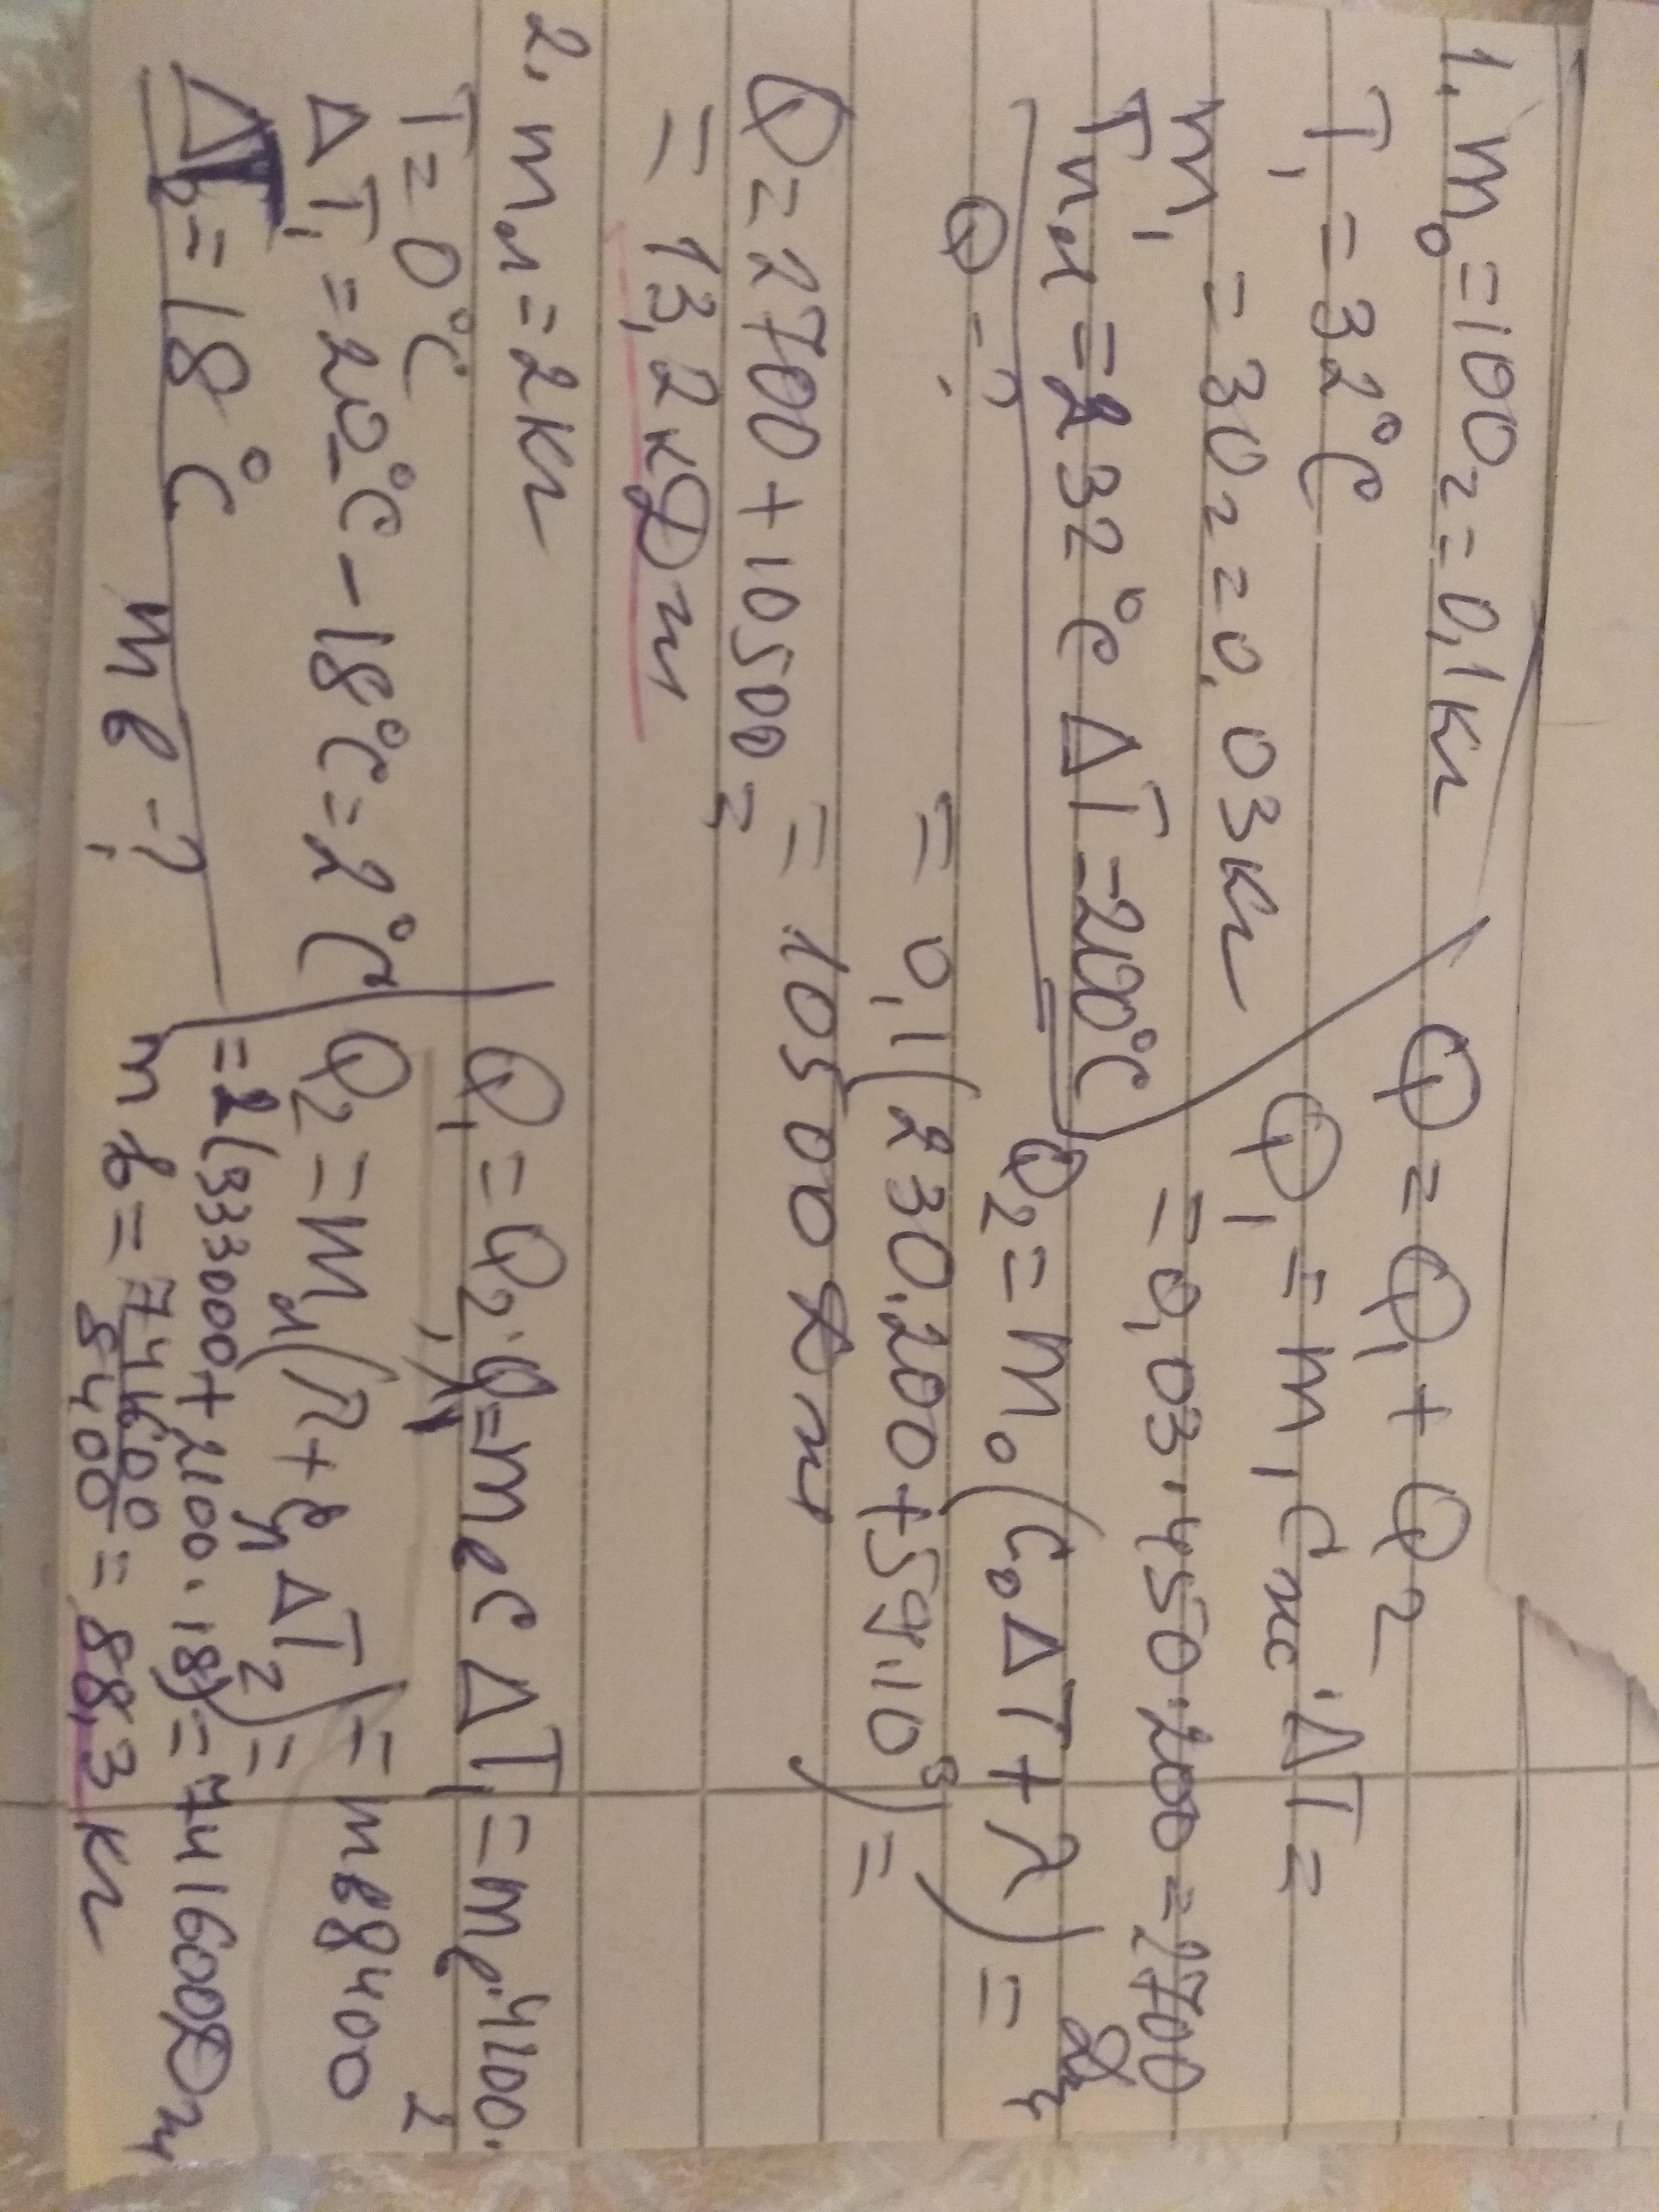 1. m₀ = 100г = 0,1кг
T₁ = 32°C
m₁ = 30г = 0,03кг
Tпл = 232°C ΔT = 200°C
Q - ?
Q = Q₁ + Q₂
Q₁ = m₁ c жс · ΔT =
= 0,03 · 450 · 200 = 2700 Дж
Q₂ = m₀ (c₀ ΔT + λ) =
= 0,1 (230 · 200 + 59 · 10³) =
= 10500 Дж
Q = 2700 + 10500 =
= 13,2 кДж
2. mл = 2кг
T = 0°C
ΔT₁ = 20°C - 18°C = 2°C
= 18°C
mв - ?
Q₁ = Q₂ = mв c ΔT₁ = mв · 4200 · 2
= mв 8400
Q₂ = mл (λ + ΔT₂) =
= 2 (333000 + 2100 · 18) = 741600 Дж
mв = 741600 / 8400 = 88,3 кг